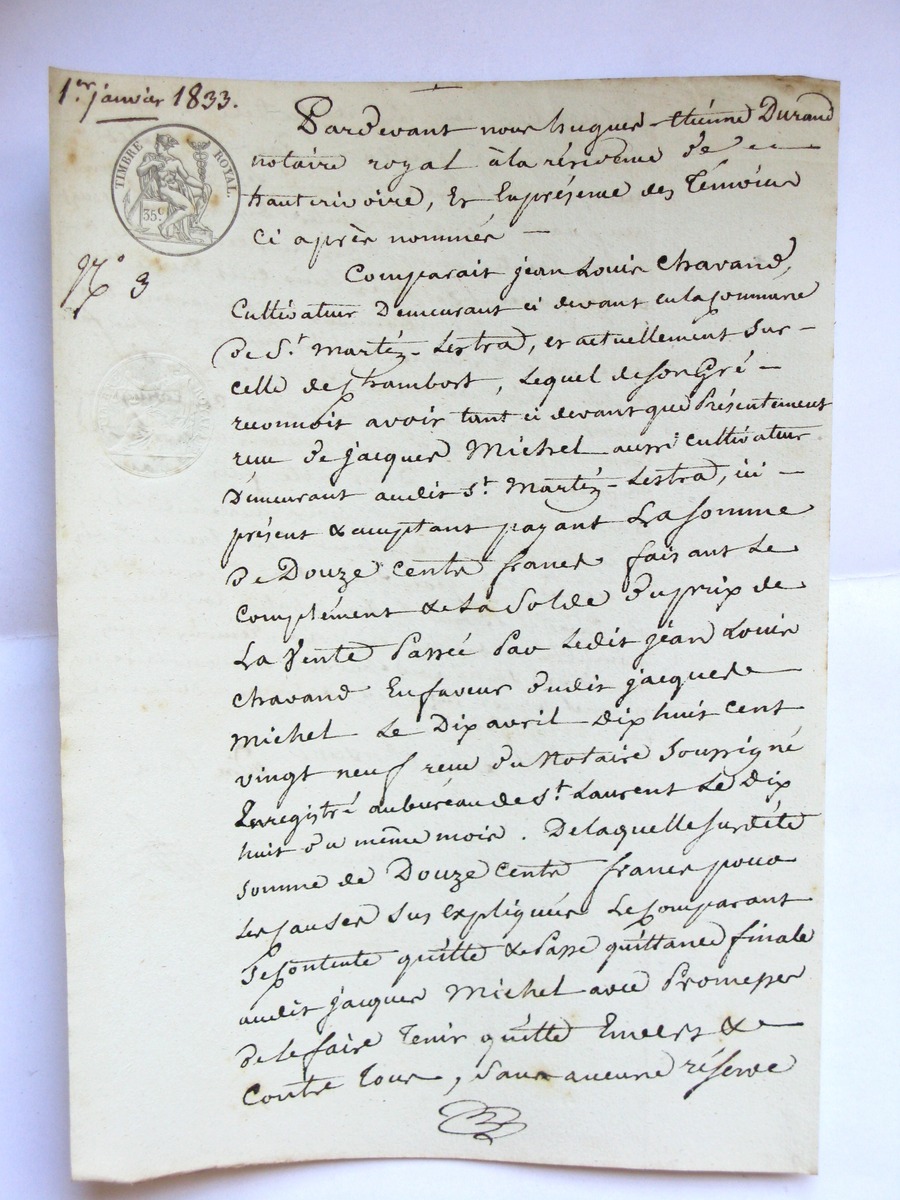 1.er janvier 1833.
TIMBRE ROYAL.
35c.
N.o 3
Pardevant nous hugues étiénne Durand
notaire royal à la résidence de
hauterivoire, Et En présence des Témoins
ci après nommés
Comparait jean Louis Chavand,
Cultivateur Demeurant ci devant en la Commune
de S.t Martin-Lestrad, et actuellement sur
celle de Chambost, Lequel de son Gré
reconnoit avoir tant ci devant que Présentement
reçu de jacques Michel aussi cultivateur
Démeurant audit S.t Martin-Lestrad, ici
présent & acceptant payant La somme
de Douze cents francs faisant Le
Complément & La Solde du prix de
La Vente Passée Par Ledit jéan Louis
Chavand En faveur dudit jacques
Michel Le Dix avril dix huit cent
vingt neuf reçue du Notaire Soussigné
Enregistré au buréau de S.t Laurent Le Dix
huit du même mois. De laquelle susdite
somme de Douze cents francs pour
Les Causes Sus Expliquées Le Comparant
Se Contente quitte & Passe quittance finale
audit jacques Michel avec Promesses
de le faire Tenir quitte Envers &
Contre Tous, Sans aucune réserve